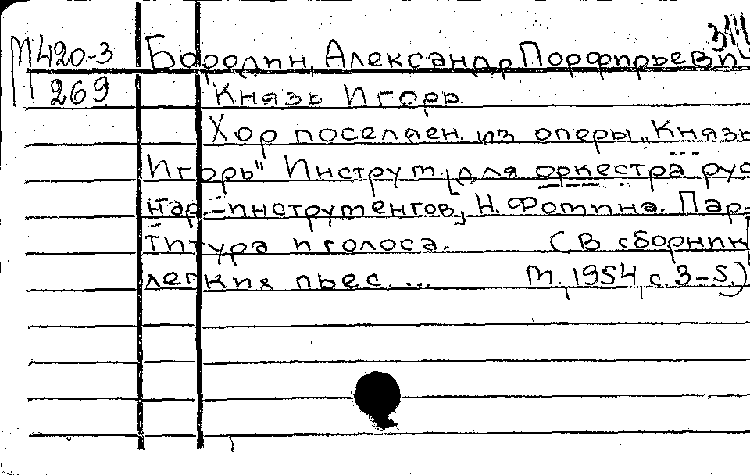 М 420-3 Бородин, Александр Порфирьевич
269 "Князь Игорь
Хор поселян из оперы „Князь
Игорь" Инструм. для оркестра рус
нар-инструментов, Н. Фомина. Пар-
титура и голоса. (В сборник
легких пьес... М, 1954, с. 3-5.)